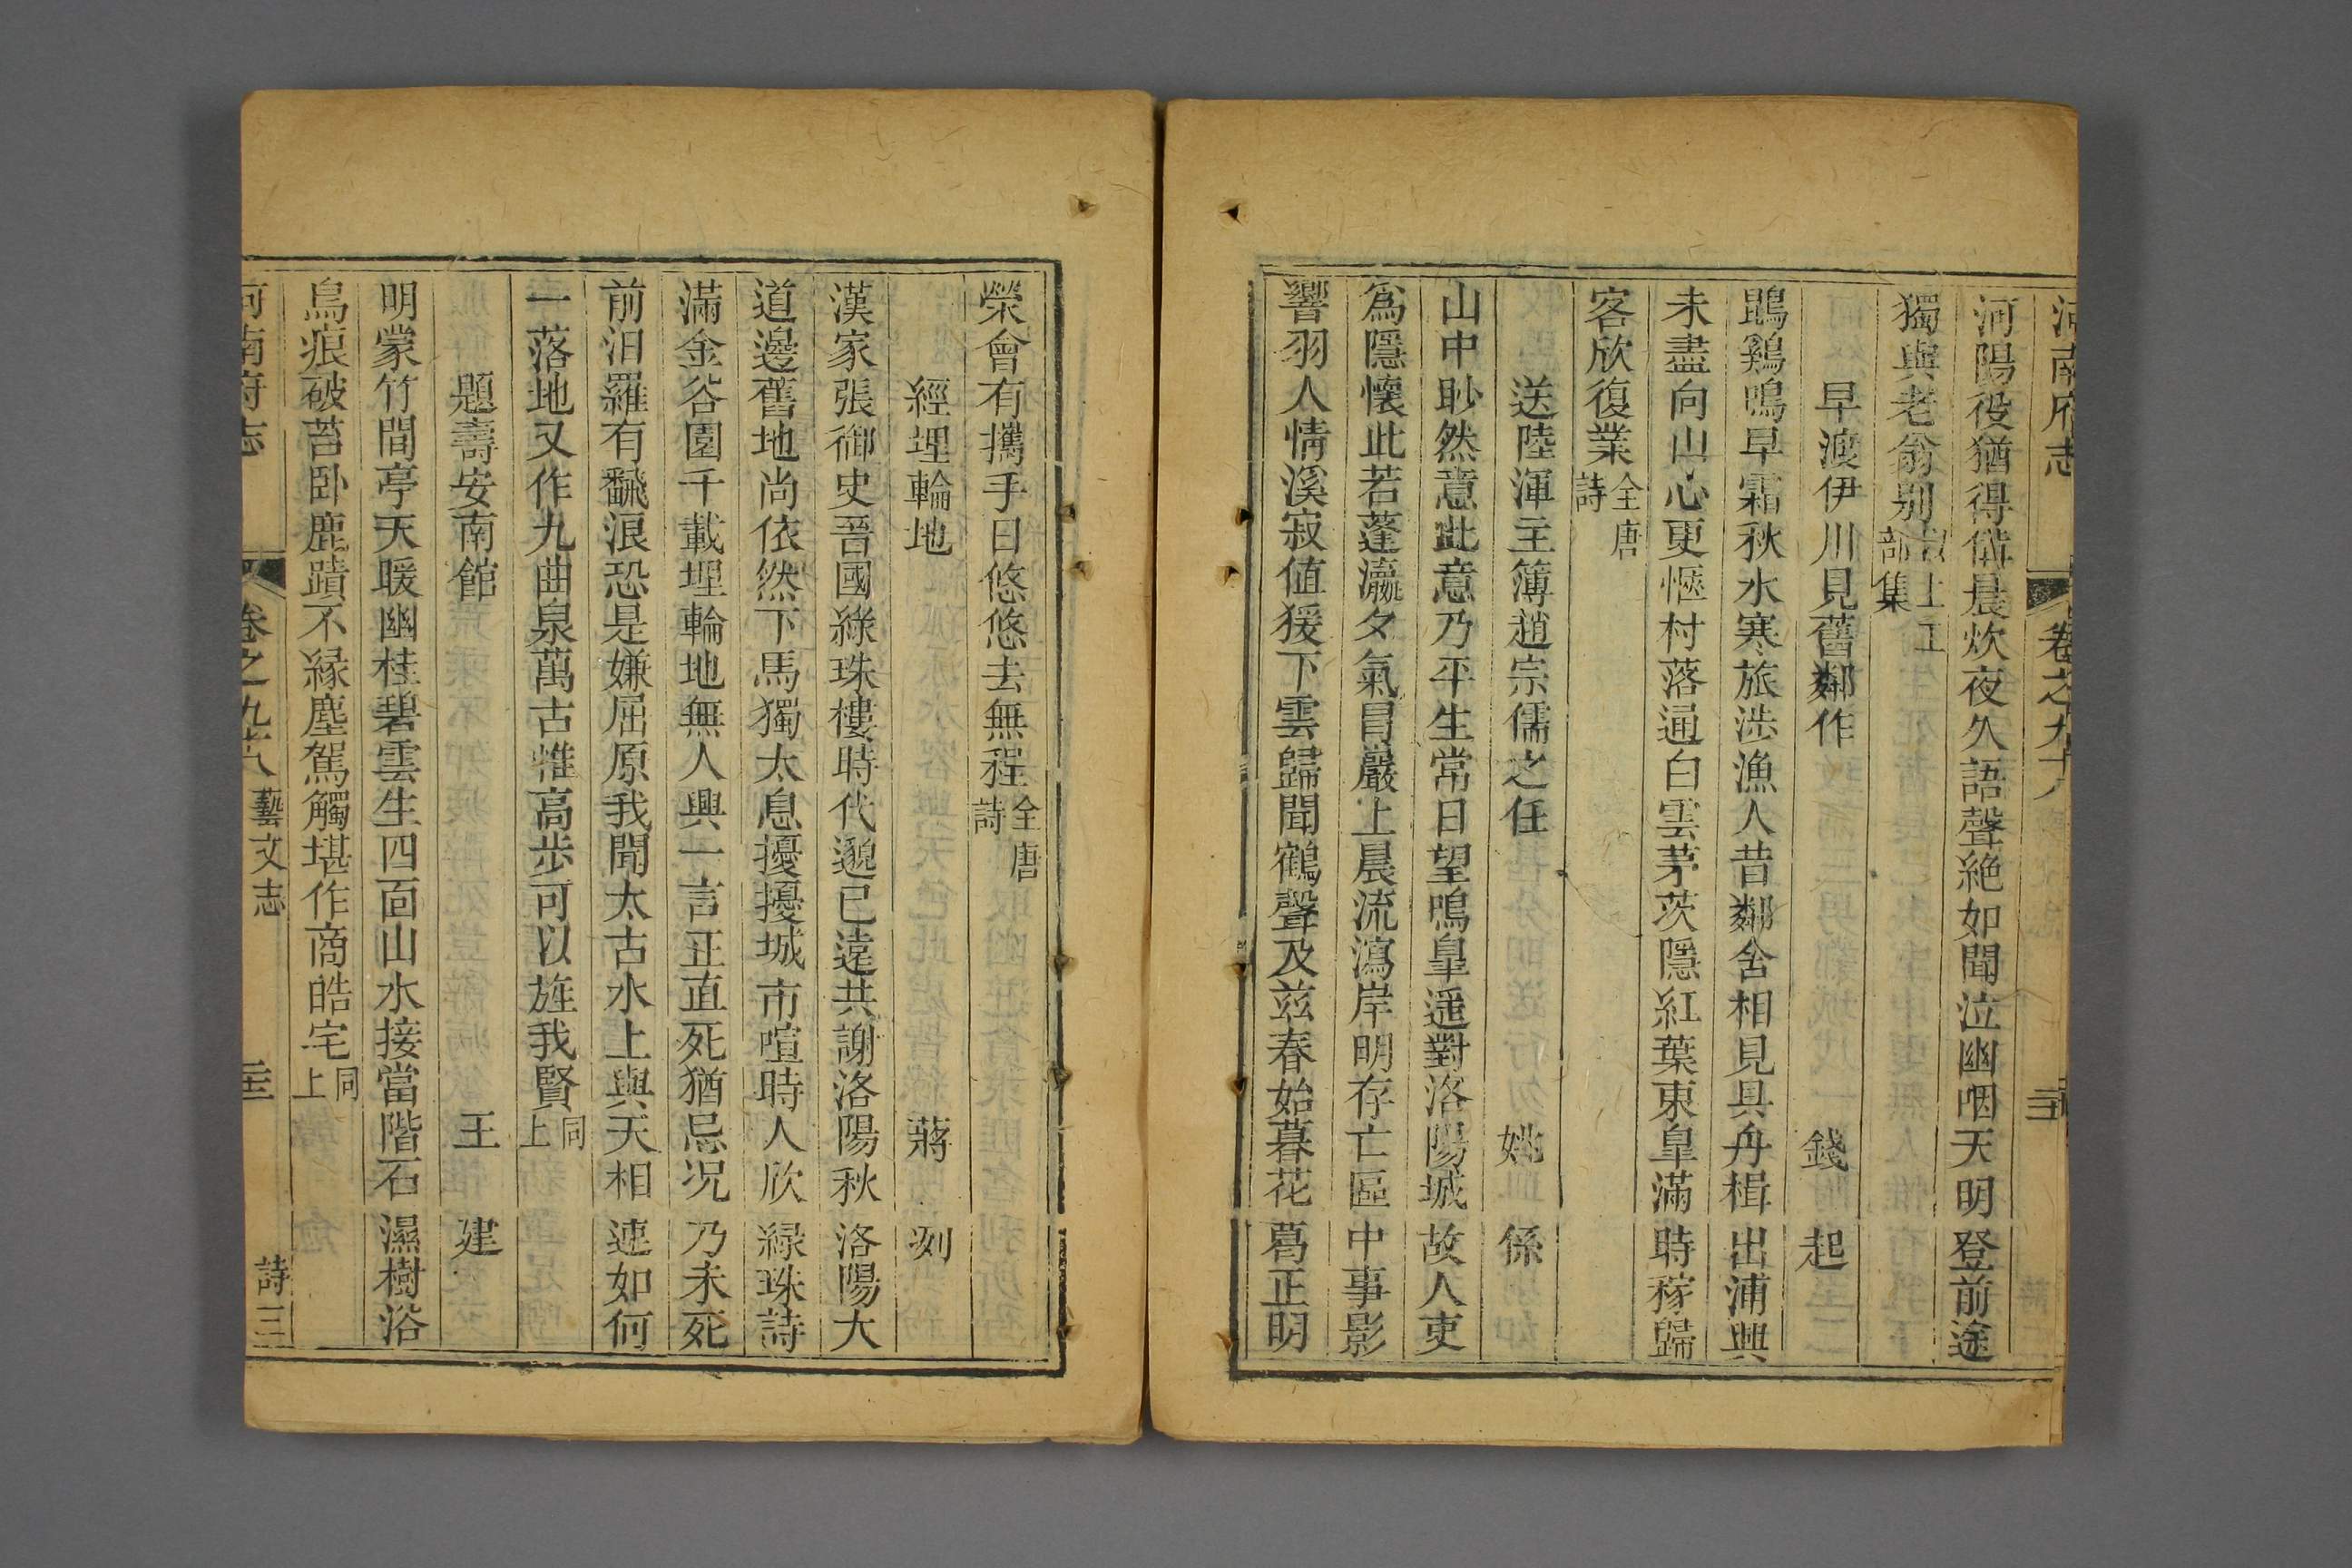 河南府志 卷之九十八
河陽役猶得備晨炊夜久語聲絶如聞泣幽咽天明登前途
獨與老翁别 上工部集
早渡伊川見舊鄰作 錢起
鵾鷄鳴早霜秋水寒旅涉漁人昔鄰舍相見具舟楫出浦興
未盡向山心更愜村落通白雲茅茨隱紅葉東皐滿時稼歸
客欣復業全唐詩
送陸渾主簿趙宗儒之任 姚係
山中眇然意此意乃平生常日望鳴臯遥對洛陽城故人吏
爲隱懷此若蓬瀛夕氣冒巖上晨流瀉岸明存亡區中事影
響羽人情溪寂值猨下雲歸聞鶴聲及兹春始暮花葛正明
榮會有攜手日悠悠去無程全唐詩
經埋輪地 蔣洌
漢家張御史晉國綠珠樓時代邈已遠共謝洛陽秋洛陽大
道邊舊地尚依然下馬獨太息擾擾城市喧時人欣綠珠詩
滿金谷園千載埋輪地無人興一言正直死猶忌况乃未死
前汨羅有飜浪恐是嫌屈原我聞太古水上與天相連如何
一落地又作九曲泉萬古惟高步可以旌我賢同上
題壽安南館 王建
明蒙竹間亭天暖幽桂碧雲生四面山水接當階石濕樹浴
鳥痕破苔卧鹿蹟不緣塵駕觸堪作商皓宅同上
河南府志 卷之九十八 藝文志 詩三